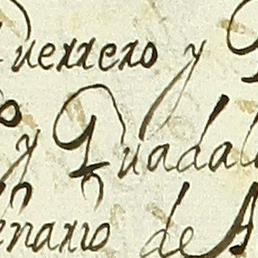 Guerrero y
y Guadal
enario de A